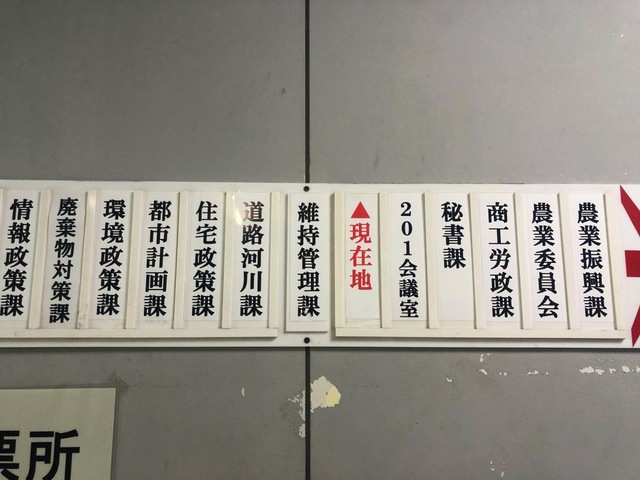 農業振興課
農業委員会
商工労政課
秘書課
201会議室
▲現在地
維持管理課
道路河川課
住宅政策課
都市計画課
環境政策課
廃棄物対策課
情報政策課
票所